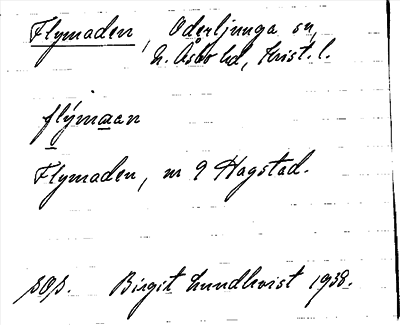 Flymaden, Oderljunga sn,
N. Åsbo hd, Krist. l.
flýmaan
Flymaden, nr 9 Hagstad.
Birgit Lundkvist 1938.